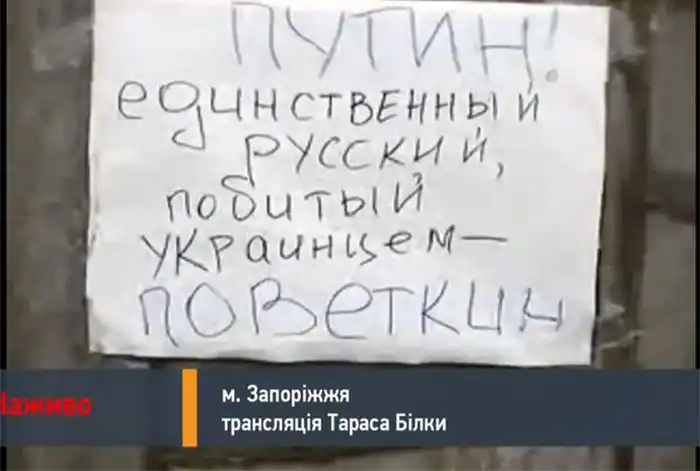 ПУТИН!
единственный
русский,
побитый
украинцем—
поветкин
Наживо
м. Запоріжжя
трансляція Тараса Білки